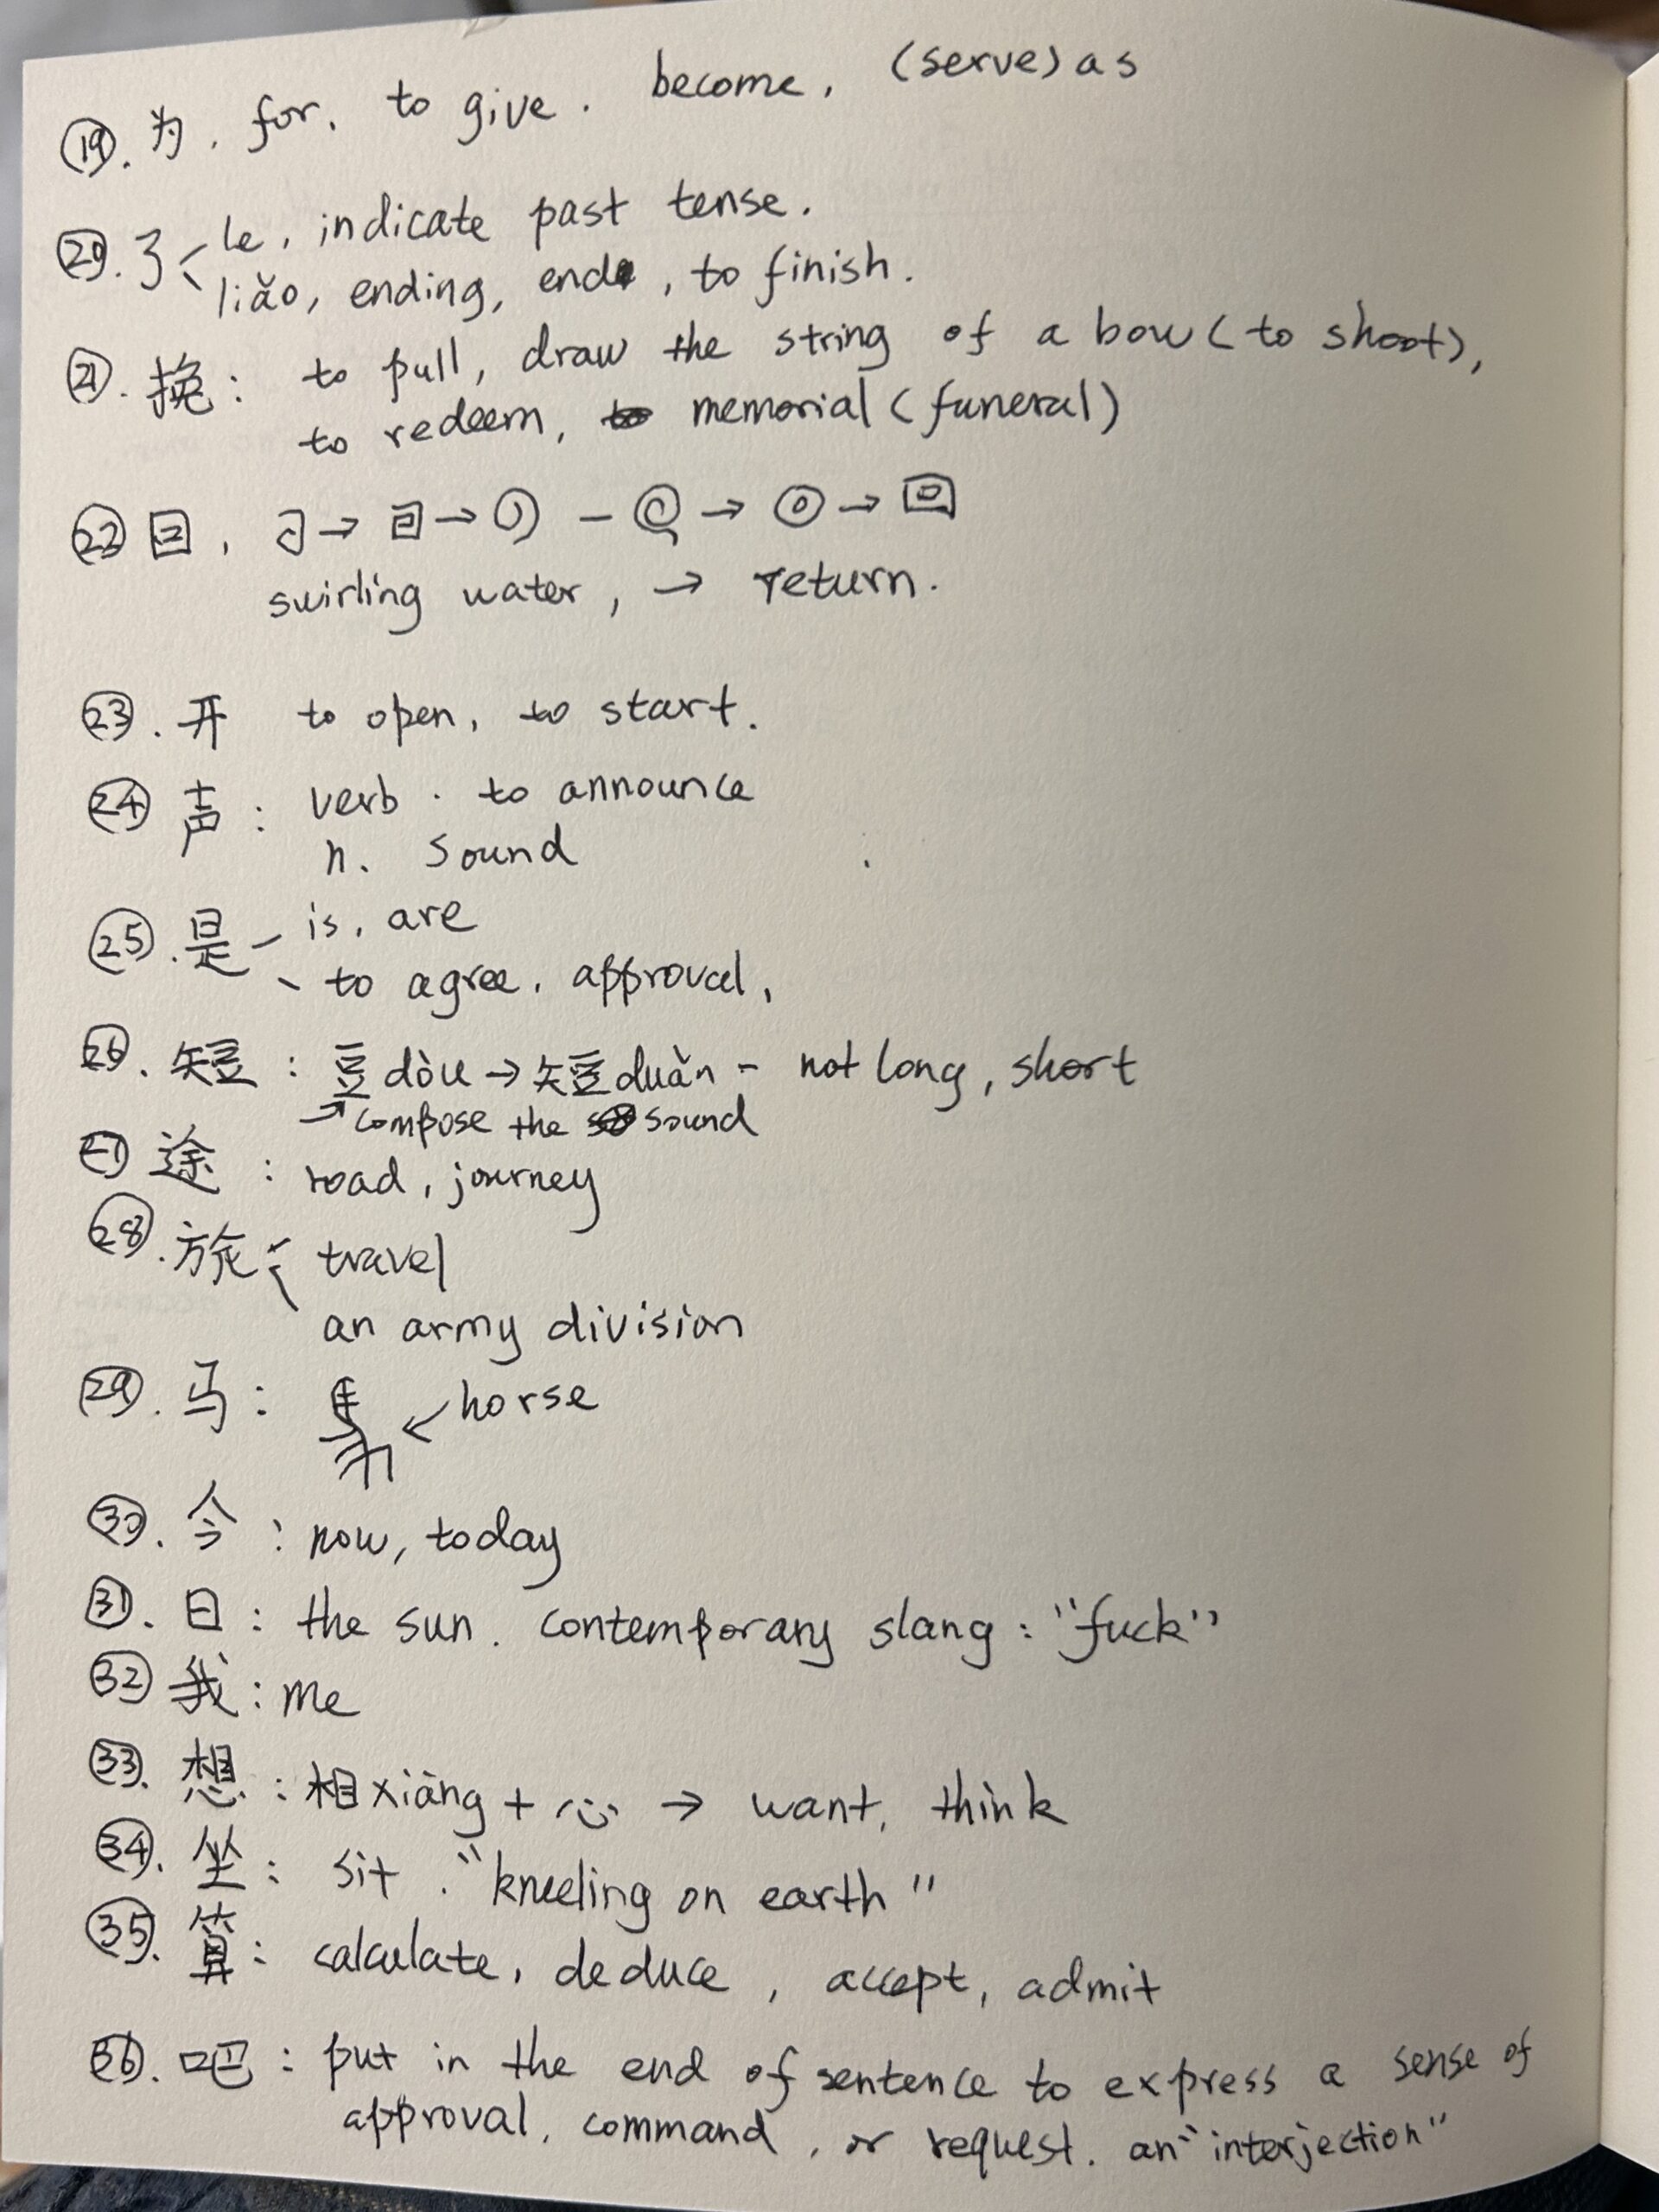 ⑲. 为. for. to give. become, (serve) as
⑳. 了 le, indicate past tense.
liǎo, ending, end, to finish.
㉑. 挽: to pull, draw the string of a bow (to shoot),
to redeem, memorial (funeral)
㉒ 回,
swirling water, → return.
㉓. 开 to open, to start.
㉔ 声: verb. to announce
n. sound
㉕. 是 is, are
to agree. approval,
㉖. 短: 豆 dòu → 短 duǎn - not long, short
compose the sound
㉗ 途: road, journey
㉘. 旅: travel
an army division
㉙. 马: ← horse
㉚. 今: now, today
㉛. 日: the sun. contemporary slang: "fuck"
㉜ 我: me
㉝. 想: 相 xiāng + 心 → want, think
㉞. 坐: sit. "kneeling on earth"
㉟. 算: calculate, deduce, accept, admit
㊱. 吧: put in the end of sentence to express a sense of
approval, command, or request. an "interjection"